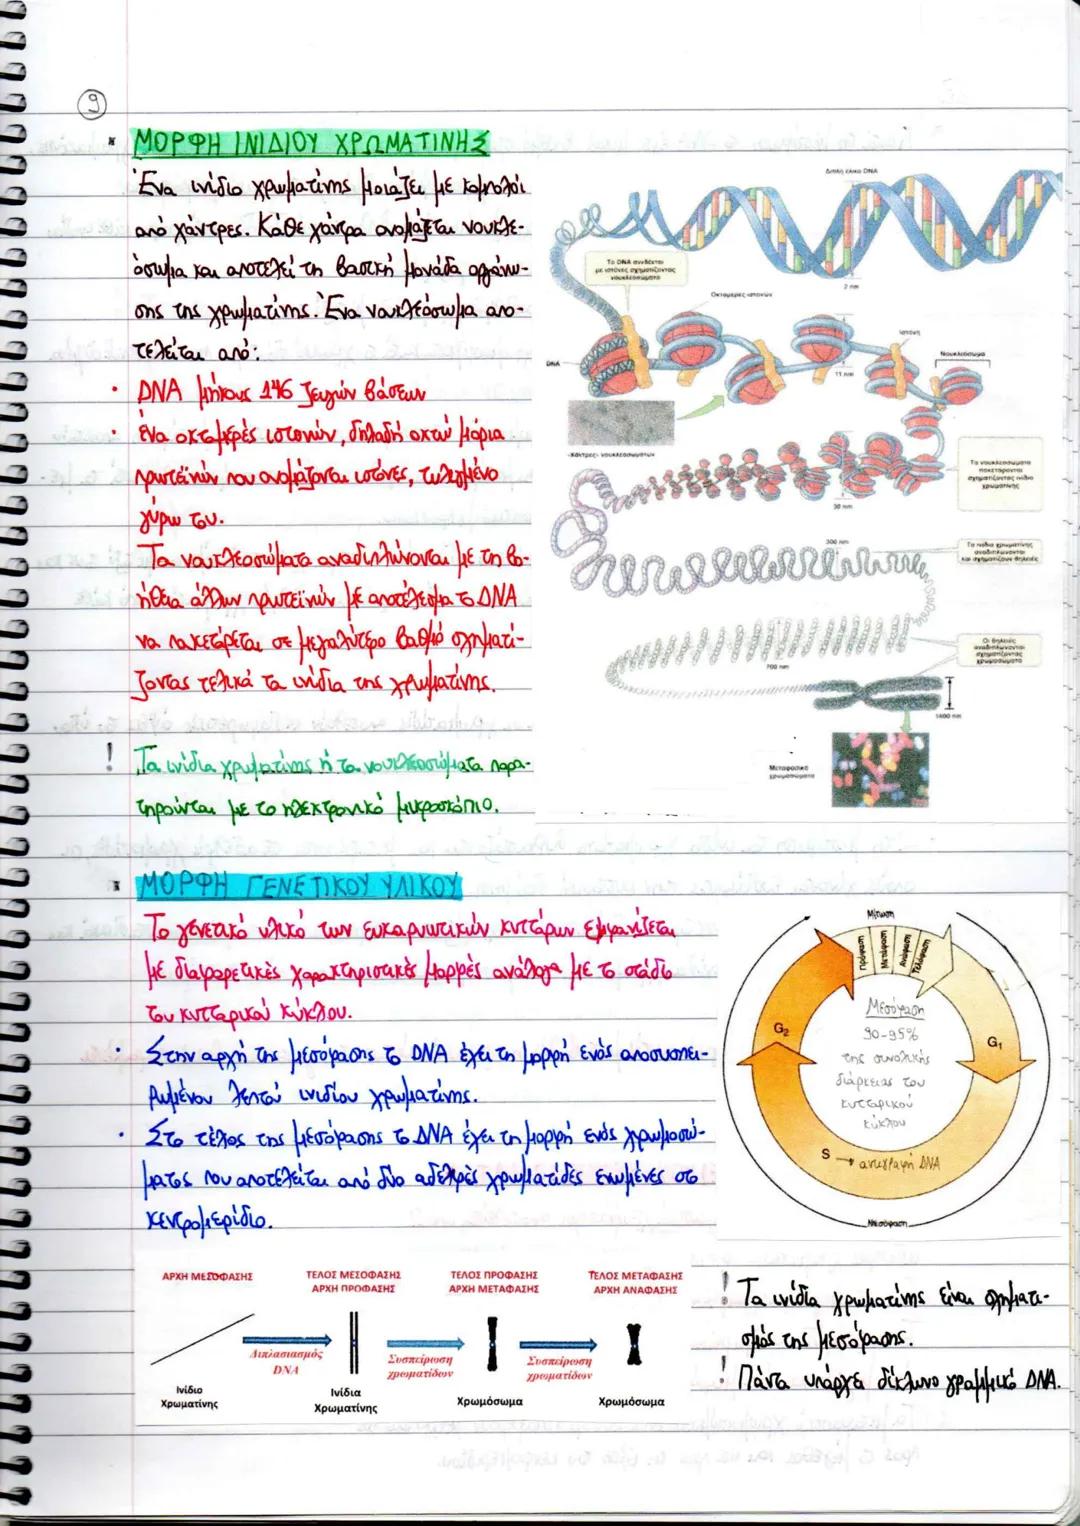 9
ΜΟΡΦΗ ΙΝΙΔΙΟΥ ΧΡΩΜΑΤΙΝΗΣ
Ένα ινίδιο χρωματίνης μοιάζει με κομπολόι
από χάντρες. Κάθε χάντρα ονομάζεται νουκλε-
όσωμα και αποτελεί τη βασική μονάδα οργάνω-
σης της χρωματίνης. Ένα νουκλεόσωμα απο-
τελείται από:
· DNA μήκους 146 ζευγών βάσεων
· ένα οκταμερές ιστονών, δηλαδή οκτώ μόρια
πρωτεϊνών που ονομάζονται ιστόνες, τυλιγμένο
γύρω του.
Τα νουκλεοσώματα αναδιπλώνονται με τη βο-
ήθεια άλλων πρωτεϊνών με αποτέλεσμα το DNA
να πακετάρεται σε μεγαλύτερο βαθμό σχηματί-
ζοντας τελικά τα ινίδια της χρωματίνης.
! Τα ινίδια χρωματίνης ή τα νουκλεοσώματα παρα-
τηρούνται με το ηλεκτρονικό μικροσκόπιο.
Διπλή έλικα DNA
Το DNA συνδέεται
με ιστόνες σχηματίζοντας
νουκλεοσώματα
2 nm
Οκταμερές ιστονών
ιστόνη
Νουκλεόσωμα
DNA
11 nm
«Χάντρες» νουκλεοσωμάτων
Τα νουκλεοσώματα
πακετάρονται
σχηματίζοντας ινίδιο
χρωματίνης
30 nm
300 nm
Τα ινίδια χρωματίνης
αναδιπλώνονται
και σχηματίζουν θηλειές
Οι θηλειές
αναδιπλώνονται
σχηματίζοντας
χρωμοσώματα
700 nm
1400 nm
Μεταφασικά
χρωμοσώματα
ΜΟΡΦΗ ΓΕΝΕΤΙΚΟΥ ΥΛΙΚΟΥ
Το γενετικό υλικό των ευκαρυωτικών κυττάρων εμφανίζεται
με διαφορετικές χαρακτηριστικές μορφές ανάλογα με το στάδιο
του κυτταρικού κύκλου.
· Στην αρχή της μεσόφασης το DNA έχει τη μορφή ενός αποσυσπει-
ρωμένου λεπτού ινιδίου χρωματίνης.
· Στο τέλος της μεσόφασης το DNA έχει τη μορφή ενός χρωμοσώ-
ματος που αποτελείται από δύο αδελφές χρωματίδες ενωμένες στο
κεντρομερίδιο.
Μίτωση
Πρόφαση
Μετάφαση
Ανάφαση
Τελόφαση
G2
G1
Μεσόφαση
90-95%
της συνολικής
διάρκειας του
κυτταρικού
κύκλου
S → αντιγραφή DNA
Μεσόφαση
ΑΡΧΗ ΜΕΣΟΦΑΣΗΣ
ΤΕΛΟΣ ΜΕΣΟΦΑΣΗΣ
ΑΡΧΗ ΠΡΟΦΑΣΗΣ
ΤΕΛΟΣ ΠΡΟΦΑΣΗΣ
ΑΡΧΗ ΜΕΤΑΦΑΣΗΣ
ΤΕΛΟΣ ΜΕΤΑΦΑΣΗΣ
ΑΡΧΗ ΑΝΑΦΑΣΗΣ
Διπλασιασμός
DNA
Συσπείρωση
χρωματίδων
Συσπείρωση
χρωματίδων
Ινίδιο
Χρωματίνης
Ινίδια
Χρωματίνης
Χρωμόσωμα
Χρωμόσωμα
! Τα ινίδια χρωματίνης είναι σχηματι-
σμός της μεσόφασης.
! Πάντα υπάρχει δίκλωνο γραμμικό DNA.